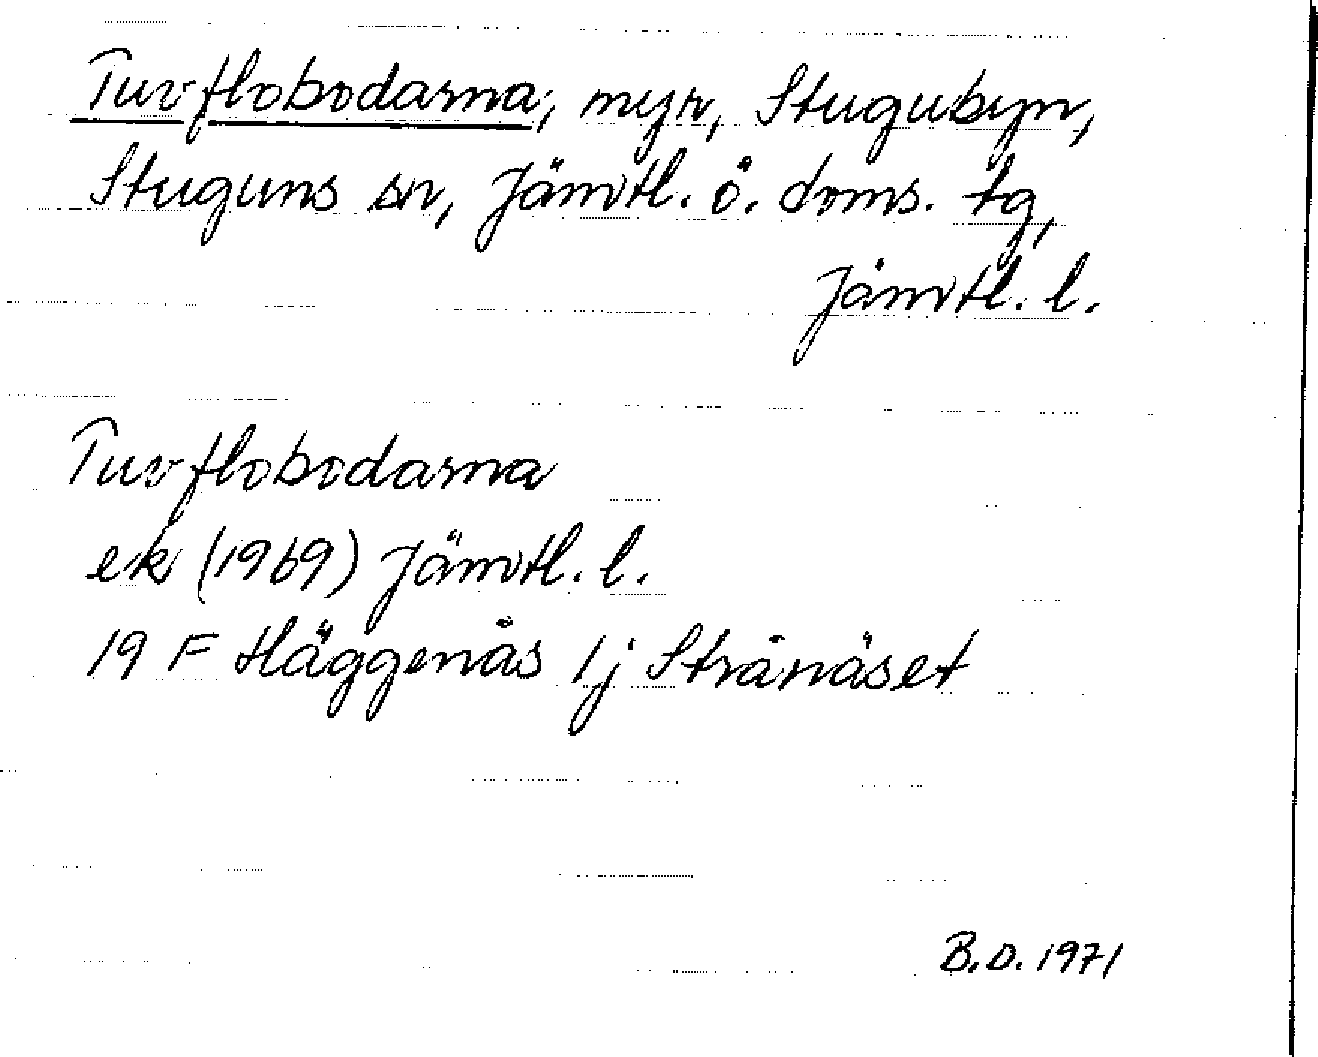 Tuvflobodarna, myr, Stugubyn,
Stuguns sn, Jämtl. ö. doms. tg,
Jämtl. l.
Tuvflobodarna
ek (1969) Jämtl. l.
19 F Häggenås 1j Strånäset
B.D. 1971